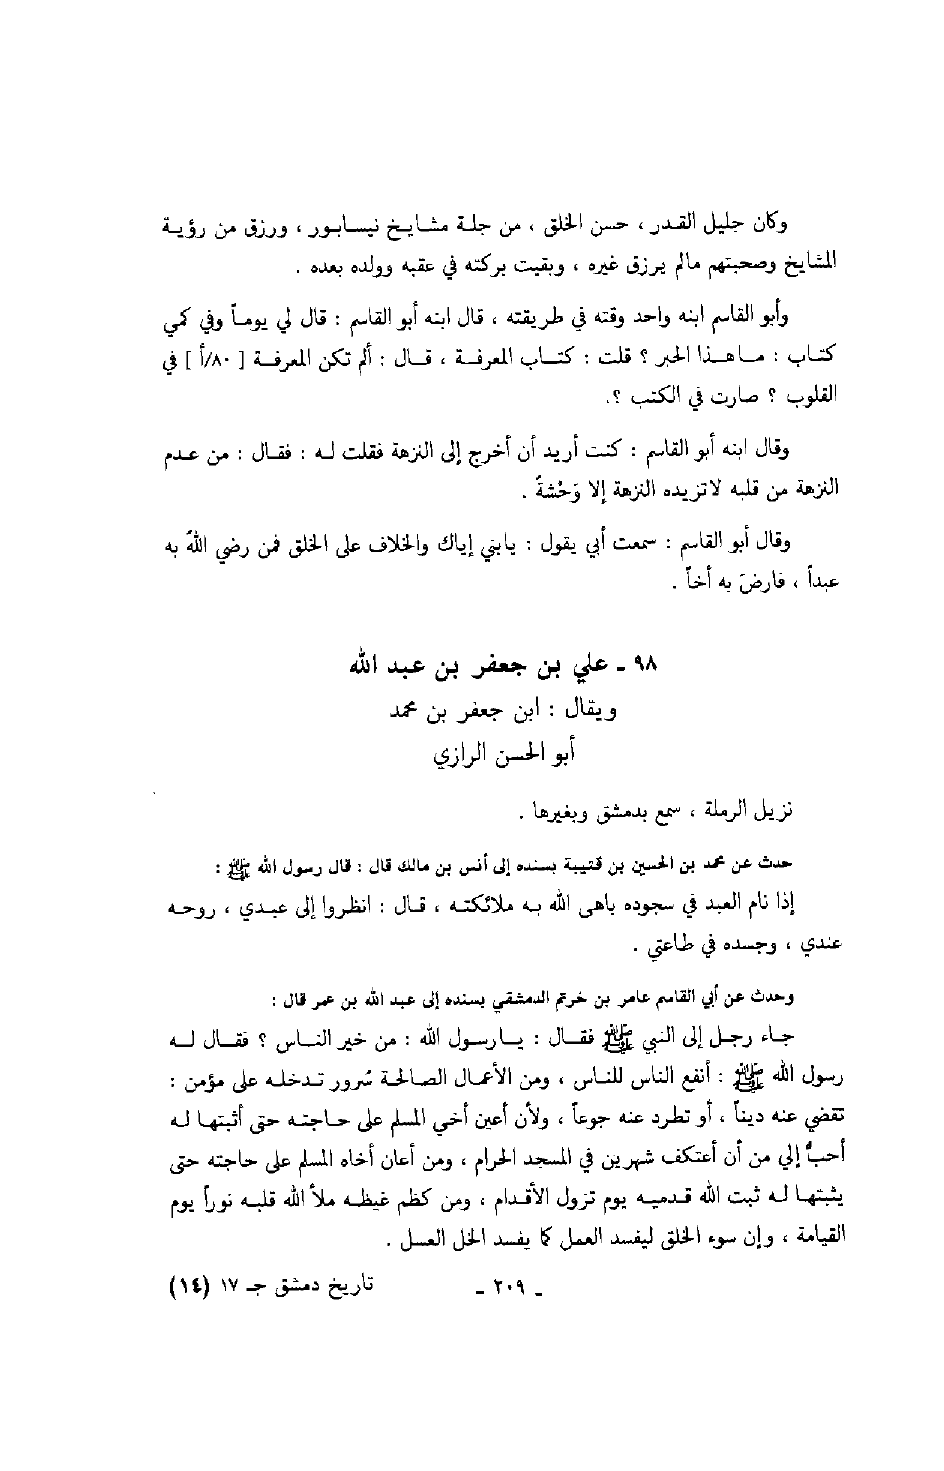 وكان جليل القدر ، حسن الخلق ، من جلة مشايخ نيسابور ، ورزق من رؤية
المشايخ وصحبتهم مالم يرزق غيره ، وبقيت بركته في عقبه وولده بعده .
وأبو القاسم ابنه واحد وقته في طريقته ، قال ابنه أبو القاسم : قال لي يوماً وفي كمي
كتاب : ماهذا الخبر ؟ قلت : كتاب المعرفة ، قال : ألم تكن المعرفة [ ٨٠/أ ] في
القلوب ؟ صارت في الكتب ؟.
وقال ابنه أبو القاسم : كنت أريد أن أخرج إلى النزهة فقلت له : فقال : من عدم
النزهة من قلبه لاتزيده النزهة إلا وَحْشةً .
وقال أبو القاسم : سمعت أبي يقول : يابني إياك والخلاف على الخلق فمن رضي اللهُ به
عبداً ، فارضَ به أخاً .
٩٨ ـ علي بن جعفر بن عبد الله
ويقال : ابن جعفر بن محمد
أبو الحسن الرازي
نزيل الرملة ، سمع بدمشق وبغيرها .
حدث عن محمد بن الحسين بن قتيبة بسنده إلى أنس بن مالك قال : قال رسول الله ﷺ :
إذا نام العبد في سجوده باهى الله به ملائكته ، قال : انظروا إلى عبدي ، روحه
عندي ، وجسده في طاعتي .
وحدث عن أبي القاسم عامر بن خريم الدمشقي بسنده إلى عبد الله بن عمر قال :
جاء رجل إلى النبي ﷺ فقال : يارسول الله : من خير الناس ؟ فقال له
رسول الله ﷺ : أنفع الناس للناس ، ومن الأعمال الصالحة سُرور تدخله على مؤمن :
تقضي عنه ديناً ، أو تطرد عنه جوعاً ، ولأن أعين أخي المسلم على حاجته حتى أثبتها له
أحبُّ إلي من أن أعتكف شهرين في المسجد الحرام ، ومن أعان أخاه المسلم على حاجته حتى
يثبتها له ثبت الله قدميه يوم تزول الأقدام ، ومن كظم غيظه ملأ الله قلبه نوراً يوم
القيامة ، وإن سوء الخلق ليفسد العمل كما يفسد الخل العسل .
ـ ٢٠٩ ـ تاريخ دمشق جـ ١٧ (١٤)